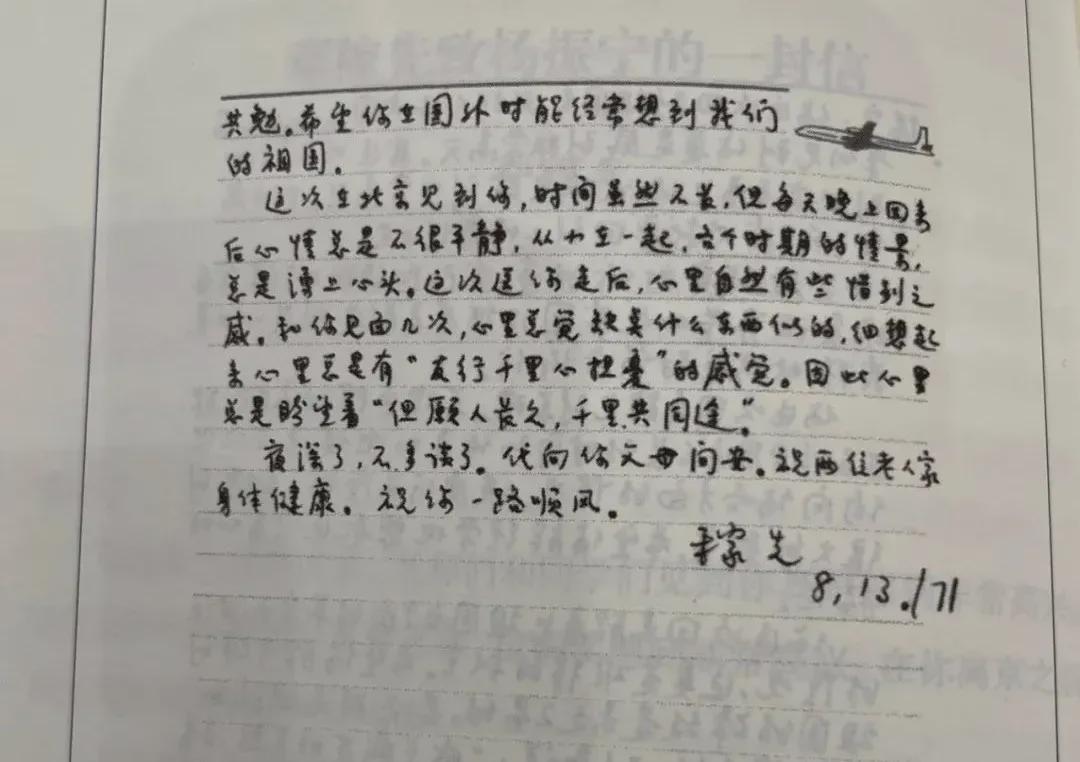 共勉。希望你在国外时能经常想到我们
的祖国。
这次在北京见到你，时间虽然不长，但每天晚上回来
后心情总是不很平静，从小在一起，各个时期的情景，
总是涌上心头。这次送你走后，心里自然有些惜别之
感。和你见面几次，心里总觉缺点什么东西似的，细想起
来心里总是有“友行千里心担憂”的感觉。因此心里
总是盼望着“但願人长久，千里共同途。”
夜深了，不多谈了。代向你父母问安。祝两位老人家
身体健康。祝你一路顺风。
稼先
8, 13./71